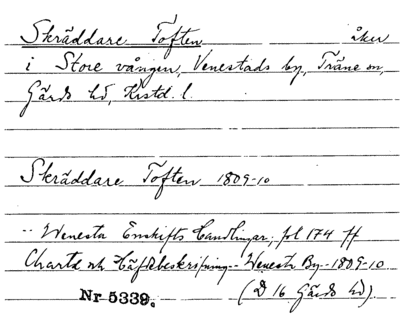 Skräddare Toften åker
i Store vången, Venestads by, Träne sn,
Gärds hd, Krstd. l.
Skräddare Toften 1809-10
-- Wenesta Enskifts Handlingar; fol 174 ff
Charta och Häfdebeskrifning -- Wenesta By -- 1809-10
Nr 5339. (D 16 Gärds hd).